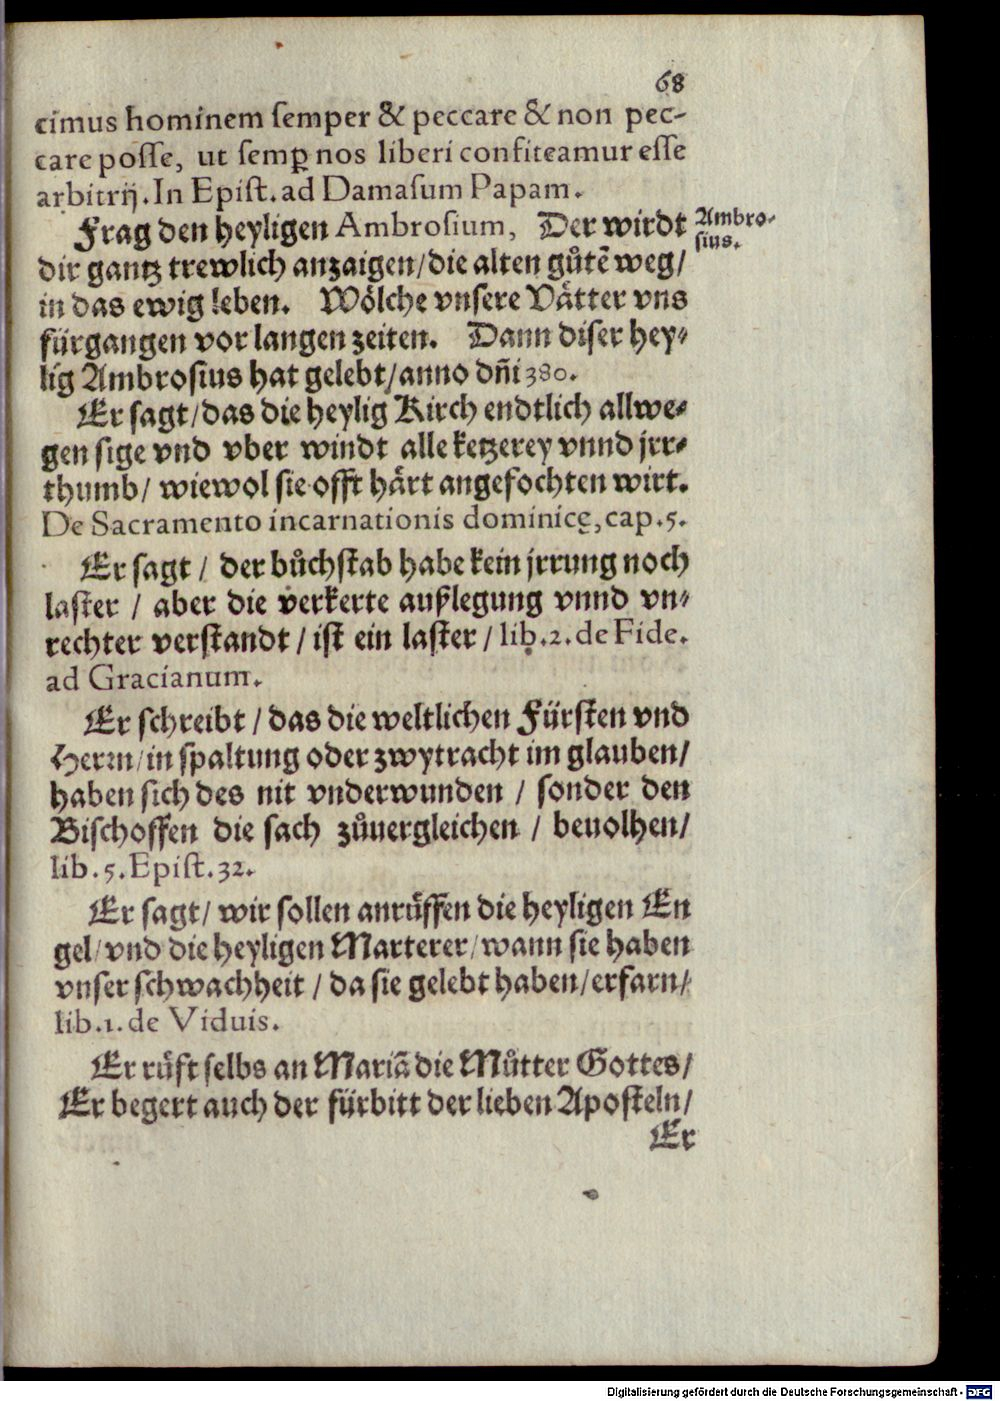 68
cimus hominem ſemper & peccare & non pec-
care poſſe, ut ſemꝑ nos liberi confiteamur eſſe
arbitrij. In Epiſt. ad Damaſum Papam.
Frag den heyligen Ambroſium, Der wirdt
Ambro-
ſius.
dir gantz trewlich anzaigen/die alten gůtē weg/
in das ewig leben. Wölche vnſere Vätter vns
fürgangen vor langen zeiten. Dann diſer hey-
lig Ambroſius hat gelebt/anno dñi 380.
Er ſagt/das die heylig Kirch endtlich allwe-
gen ſige vnd vber windt alle ketzerey vnnd jrr-
thumb/ wiewol ſie offt härt angefochten wirt.
De Sacramento incarnationis dominicę, cap. 5.
Er ſagt / der bůchſtab habe kein jrrung noch
laſter / aber die verkerte außlegung vnnd vn-
rechter verſtandt / iſt ein laſter / lib. 2. de Fide.
ad Gracianum.
Er ſchreibt / das die weltlichen Fürſten vnd
Herrn/in ſpaltung oder zwytracht im glauben/
haben ſich des nit vnderwunden / ſonder den
Biſchoffen die ſach zůuergleichen / beuolhen/
lib. 5. Epiſt. 32.
Er ſagt/ wir ſollen anrůffen die heyligen En
gel/vnd die heyligen Marterer/wann ſie haben
vnſer ſchwachheit / da ſie gelebt haben/erfarn/
lib. 1. de Viduis.
Er růft ſelbs an Mariā die Můtter Gottes/
Er begert auch der fürbitt der lieben Apoſteln/
Er
Digitalisierung gefördert durch die Deutsche Forschungsgemeinschaft - DFG